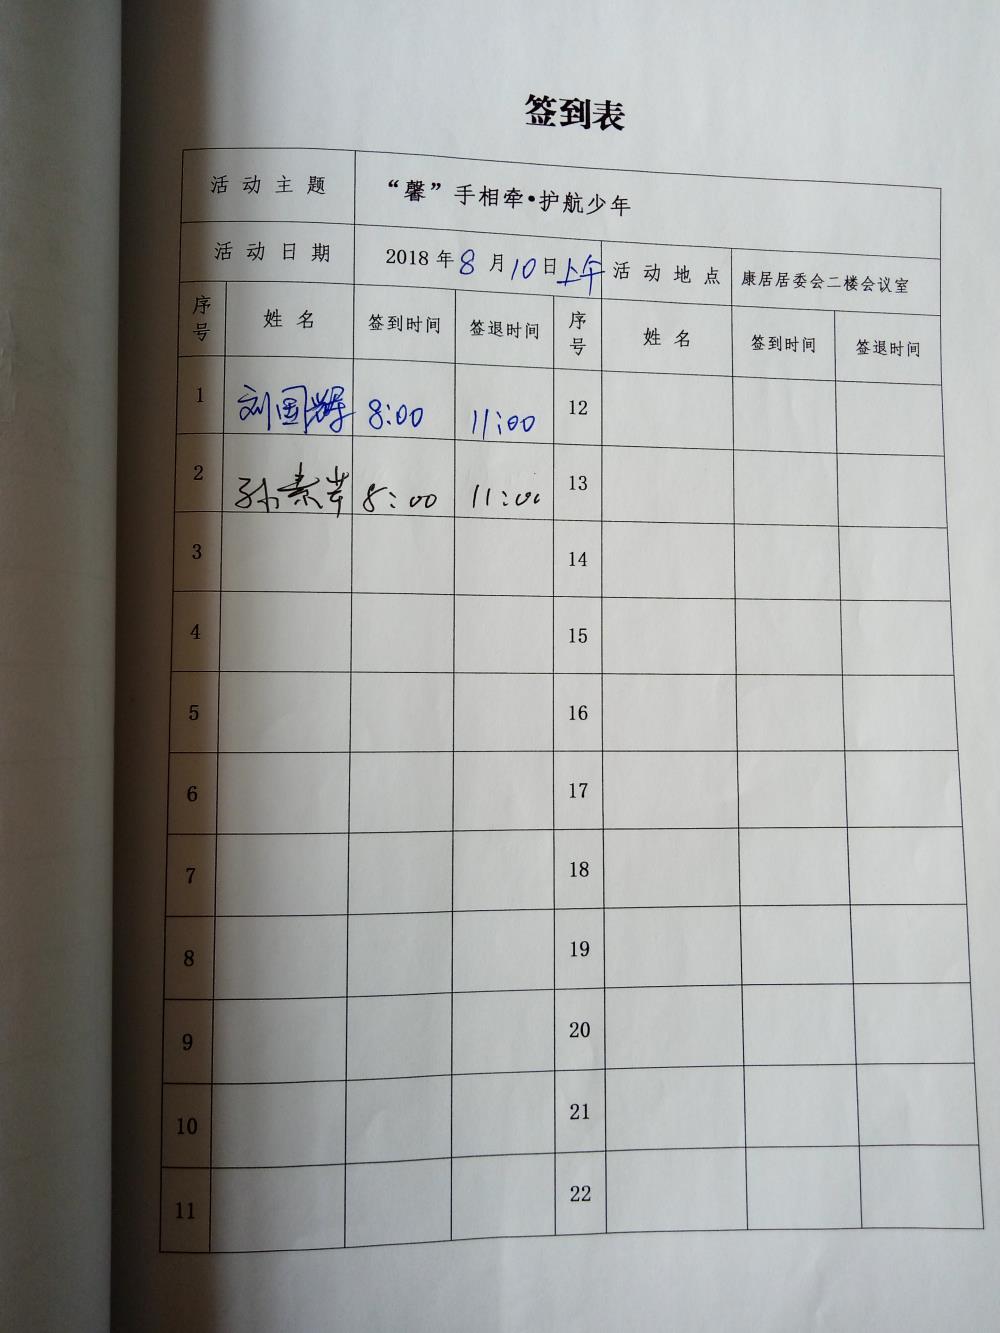 签到表
活动主题 “馨”手相牵•护航少年
活动日期 2018年8月10日上午 活动地点 康居居委会二楼会议室
序号 姓名 签到时间 签退时间 序号 姓名 签到时间 签退时间
1 刘国辉 8:00 11:00 12
2 孙素芹 8:00 11:00 13
3 14
4 15
5 16
6 17
7 18
8 19
9 20
10 21
11 22